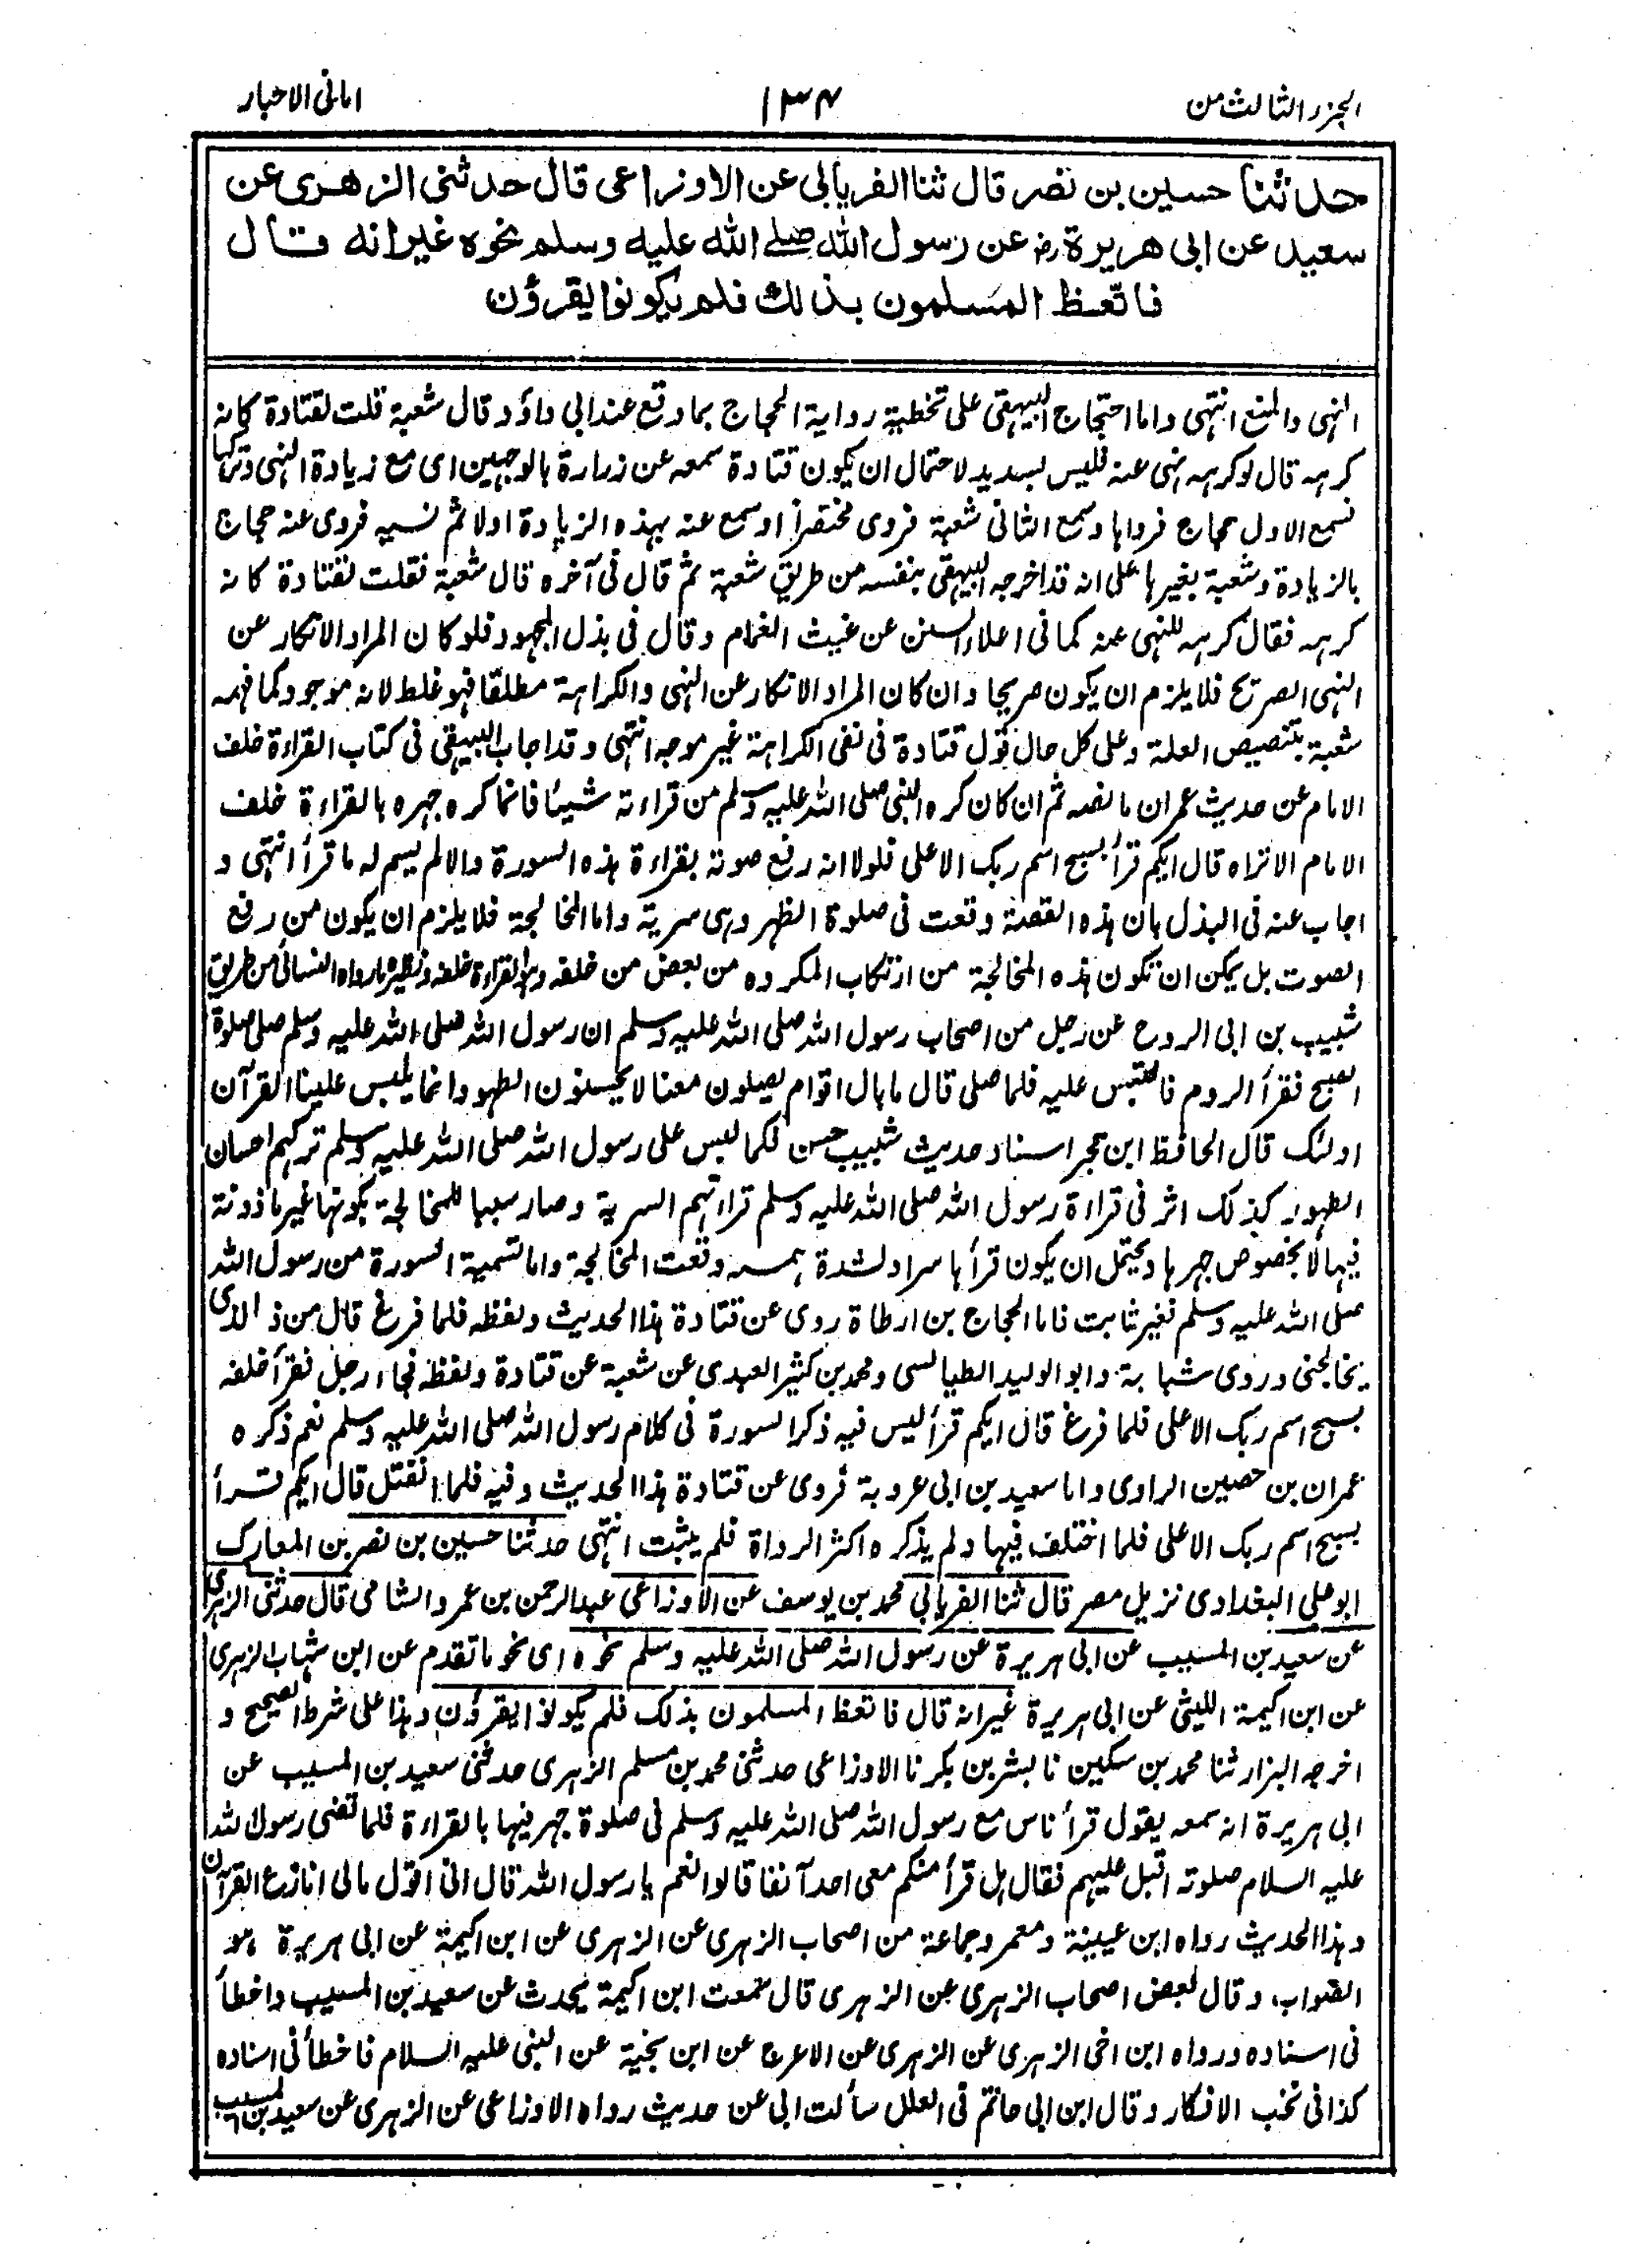 الجزء الثالث من
١٣٤
امانى الاحبار
حدثنا حسين بن نصر قال ثنا الفريابى عن الاوزاعى قال حدثنى الزهرى عن
سعيد عن ابى هريرة رض عن رسول الله صلى الله عليه وسلم نحوه غير انه قال
فاتعظ المسلمون بذلك فلم يكونوا يقرؤن
النهى والمنع انتهى واما احتجاج البيهقى على تخطية رواية الحجاج بما وقع عند ابى داؤد وقال شعبة قلت لقتادة كانه
كرهه قال لو كرهه نهى عنه فليس بسديد لاحتمال ان يكون قتادة سمعه عن زرارة بالوجهين اى مع زيادة النهى وتركها
فسمع الاول حجاج فرواها وسمع الثانى شعبة فروى مختصرا او سمع عنه بهذه الزيادة اولا ثم نسيه فروى عنه حجاج
بالزيادة وشعبة بغيرها على انه قد اخرجه البيهقى بنفسه من طريق شعبة ثم قال فى آخره قال شعبة فقلت لقتادة كانه
كرهه فقال كرهه للنهى عنه كما فى اعلاء السنن عن غيث الغمام وقال فى بذل المجهود فلو كان المراد الانكار عن
النهى الصريح فلا يلزم ان يكون صريحا وان كان المراد الانكار عن النهى والكراهة مطلقا فهو غلط لانه موجود كما فهمه
شعبة بتنصيص العلة وعلى كل حال قول قتادة فى نفى الكراهة غير موجه انتهى وقد اجاب البيهقى فى كتاب القراءة خلف
الامام عن حديث عمران ما نصه ثم ان كان كره النبى صلى الله عليه وسلم من قراءته شيئا فانما كره جهره بالقراءة خلف
الامام الا تراه قال ايكم قرأ بسبح اسم ربك الاعلى فلولا انه رفع صوته بقراءة هذه السورة والا لم يسم له ما قرأ انتهى و
اجاب عنه فى البذل بان هذه القصة وقعت فى صلوة الظهر وهى سرية واما المخالجة فلا يلزم ان يكون من رفع
الصوت بل يمكن ان تكون هذه المخالجة من ارتكاب المكروه من بعض من خلفه وهو القراءة خلفه ونظيره ما رواه النسائى من طريق
شبيب بن ابى الروح عن رجل من اصحاب رسول الله صلى الله عليه وسلم ان رسول الله صلى الله عليه وسلم صلى صلوة
الصبح فقرأ الروم فالتبس عليه فلما صلى قال ما بال اقوام يصلون معنا لا يحسنون الطهور وانما يلبس علينا القرآن
اولئك قال الحافظ ابن حجر اسناد حديث شبيب حسن فكما لبس على رسول الله صلى الله عليه وسلم تركهم احسان
الطهور كذلك اثر فى قراءة رسول الله صلى الله عليه وسلم قراءتهم السرية وصار سببا للمخالجة بكونها غير ماذونة
فيها لا بخصوص جهرها ويحتمل ان يكون قرأها سرا ولشدة همسه وقعت المخالجة واما تسمية السورة من رسول الله
صلى الله عليه وسلم فغير ثابت فاما الحجاج بن ارطاة روى عن قتادة هذا الحديث ولفظه فلما فرغ قال من ذا الذى
يخالجنى وروى شبابة وابو الوليد الطيالسى ومحمد بن كثير العبدى عن شعبة عن قتادة ولفظه فجاء رجل فقرأ خلفه
بسبح اسم ربك الاعلى فلما فرغ قال ايكم قرأ ليس فيه ذكر السورة فى كلام رسول الله صلى الله عليه وسلم نعم ذكره
عمران بن حصين الراوى واما سعيد بن ابى عروبة فروى عن قتادة هذا الحديث وفيه فلما انفتل قال ايكم قرأ
بسبح اسم ربك الاعلى فلما اختلف فيها ولم يذكره اكثر الرواة فلم يثبت انتهى حدثنا حسين بن نصر بن المعارك
ابو على البغدادى نزيل مصر قال ثنا الفريابى محمد بن يوسف عن الاوزاعى عبد الرحمن بن عمرو الشامى قال حدثنى الزهرى
عن سعيد بن المسيب عن ابى هريرة عن رسول الله صلى الله عليه وسلم نحوه اى نحو ما تقدم عن ابن شهاب الزهرى
عن ابن اكيمة الليثى عن ابى هريرة غير انه قال فاتعظ المسلمون بذلك فلم يكونوا يقرؤن وهذا على شرط الصحيح و
اخرجه البزار ثنا محمد بن سكين نا بشر بن بكر نا الاوزاعى حدثنى محمد بن مسلم الزهرى حدثنى سعيد بن المسيب عن
ابى هريرة انه سمعه يقول قرأ ناس مع رسول الله صلى الله عليه وسلم فى صلوة جهر فيها بالقراءة فلما قضى رسول الله
عليه السلام صلوته اقبل عليهم فقال هل قرأ منكم معى احد آنفا قالوا نعم يا رسول الله قال انى اقول مالى انازع القرآن
وهذا الحديث رواه ابن عيينة ومعمر وجماعة من اصحاب الزهرى عن الزهرى عن ابن اكيمة عن ابى هريرة وهو
الصواب وقال بعض اصحاب الزهرى عن الزهرى قال سمعت ابن اكيمة يحدث عن سعيد بن المسيب واخطأ
فى اسناده ورواه ابن اخى الزهرى عن الزهرى عن الاعرج عن ابن بحينة عن النبى عليه السلام فاخطأ فى اسناده
كذا فى نخب الافكار وقال ابن ابى حاتم فى العلل سألت ابى عن حديث رواه الاوزاعى عن الزهرى عن سعيد بن المسيب